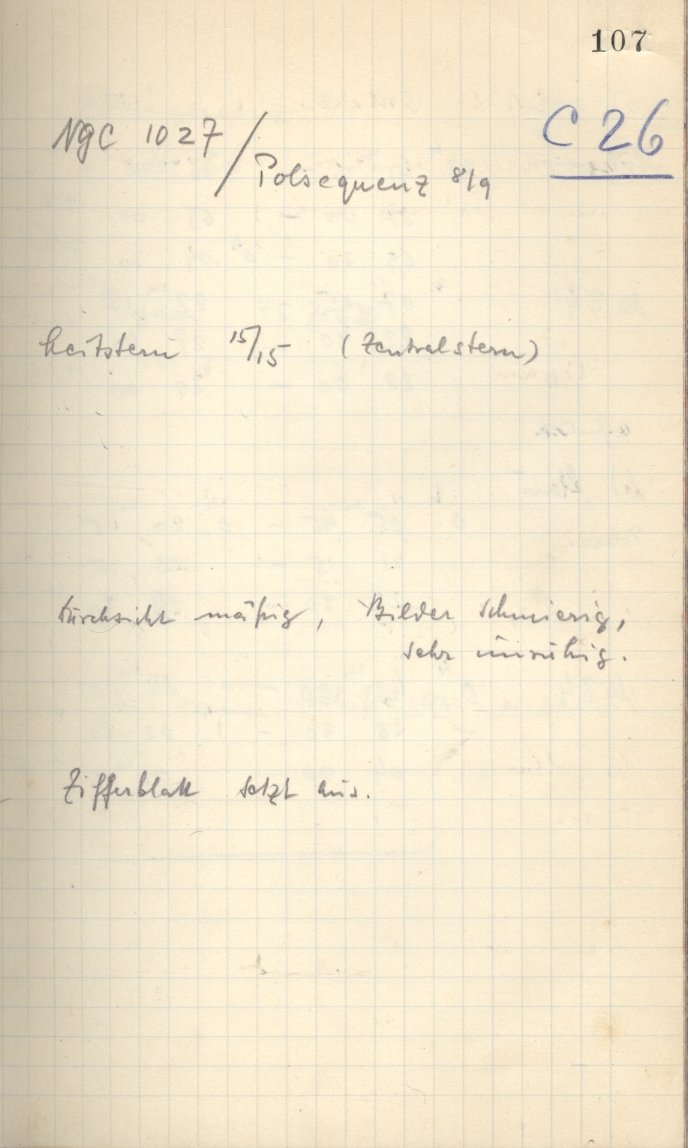 107
C 26
NGC 1027 / Polsequenz 8/9
Leitstern 15/15 (Zentralstern)
Durchsicht mäßig, Bilder schmierig,
sehr unruhig.
Zifferblatt setzt aus.